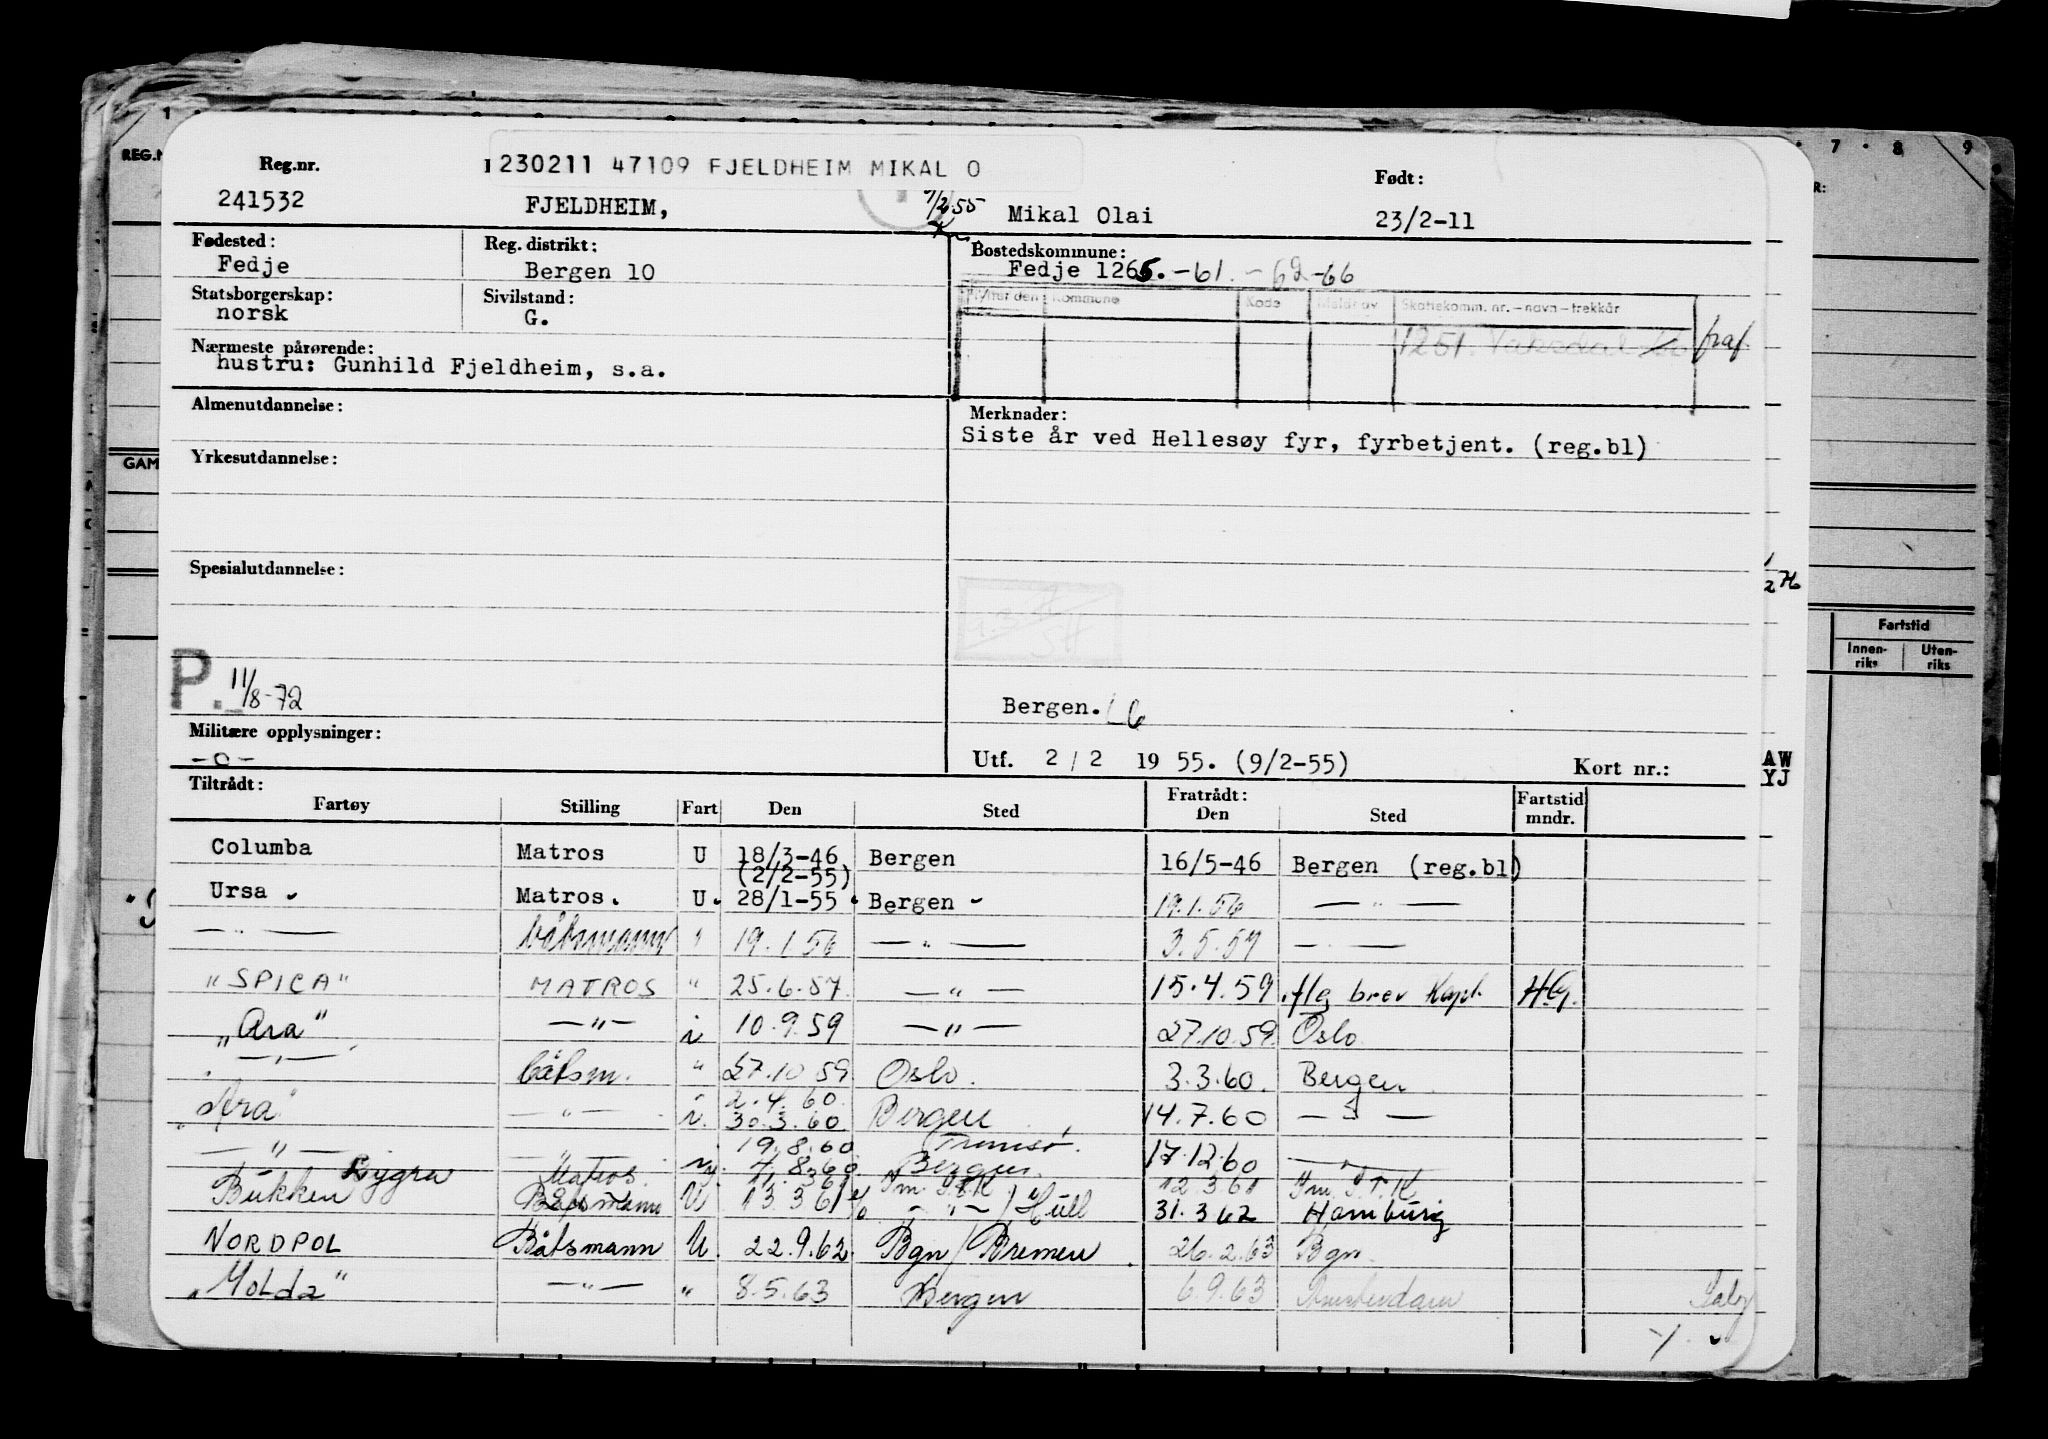 Reg.nr.
1230211 47109 FJELDHEIM MIKAL O
Født:
241532 FJELDHEIM, 9/2 55 Mikal Olai 23/2-11
Fødested: Reg. distrikt: Bostedskommune:
Fedje Bergen 10 Fedje 1265.-61.-62-66
Statsborgerskap: Sivilstand:
norsk G.
Flyttet den Kommune Kode Meldt av Skattekomm. nr.-navn-trekkår
1251. Vaksdal fraf.
Nærmeste pårørende:
hustru: Gunhild Fjeldheim, s.a.
Almenutdannelse: Merknader:
Siste år ved Hellesøy fyr, fyrbetjent. (reg.bl)
Yrkesutdannelse:
Spesialutdannelse:
P. 11/8-72
Bergen. L6
Militære opplysninger:
-o-
Utf. 2/2 1955. (9/2-55) Kort nr.:
Tiltrådt: Fratrådt:
Fartøy Stilling Fart Den Sted Den Sted Fartstid mndr.
Columba Matros U 18/3-46 Bergen 16/5-46 Bergen (reg.bl)
(2/2-55)
Ursa Matros. U. 28/1-55 Bergen 19.1.56 —"—
—"— båtsmann " 19.1.56 —"— 3.5.57 —"—
"SPICA" MATROS " 25.6.57 —"— 15.4.59 flg brev Kapt. H.G.
"Ara" —"— i 10.9.59 —"— 27.10.59 Oslo
—"— båtsm. " 27.10.59 Oslo. 3.3.60. Bergen
2.4.60.
"Ara" —"— i. 30.3.60 Bergen 14.7.60 —"—
19.8.60 Tromsø.
—"— —"— 4.8.60 Bergen 17.12.60 —"—
Lygra Matros. 12.3.61
Bükken Båtsmann U 13.3.61 —"—/Hull 31.3.62 Hamburg
NORDPOL Båtsmann U. 22.9.62 Bgn/Bremen 26.2.63 Bgn.
"Molda" —"— " 8.5.63 Bergen 6.9.63 Amsterdam
REG.N
GAM
7 8 9
R:
Fartstid
Innenriks Utenriks
AW
YJ